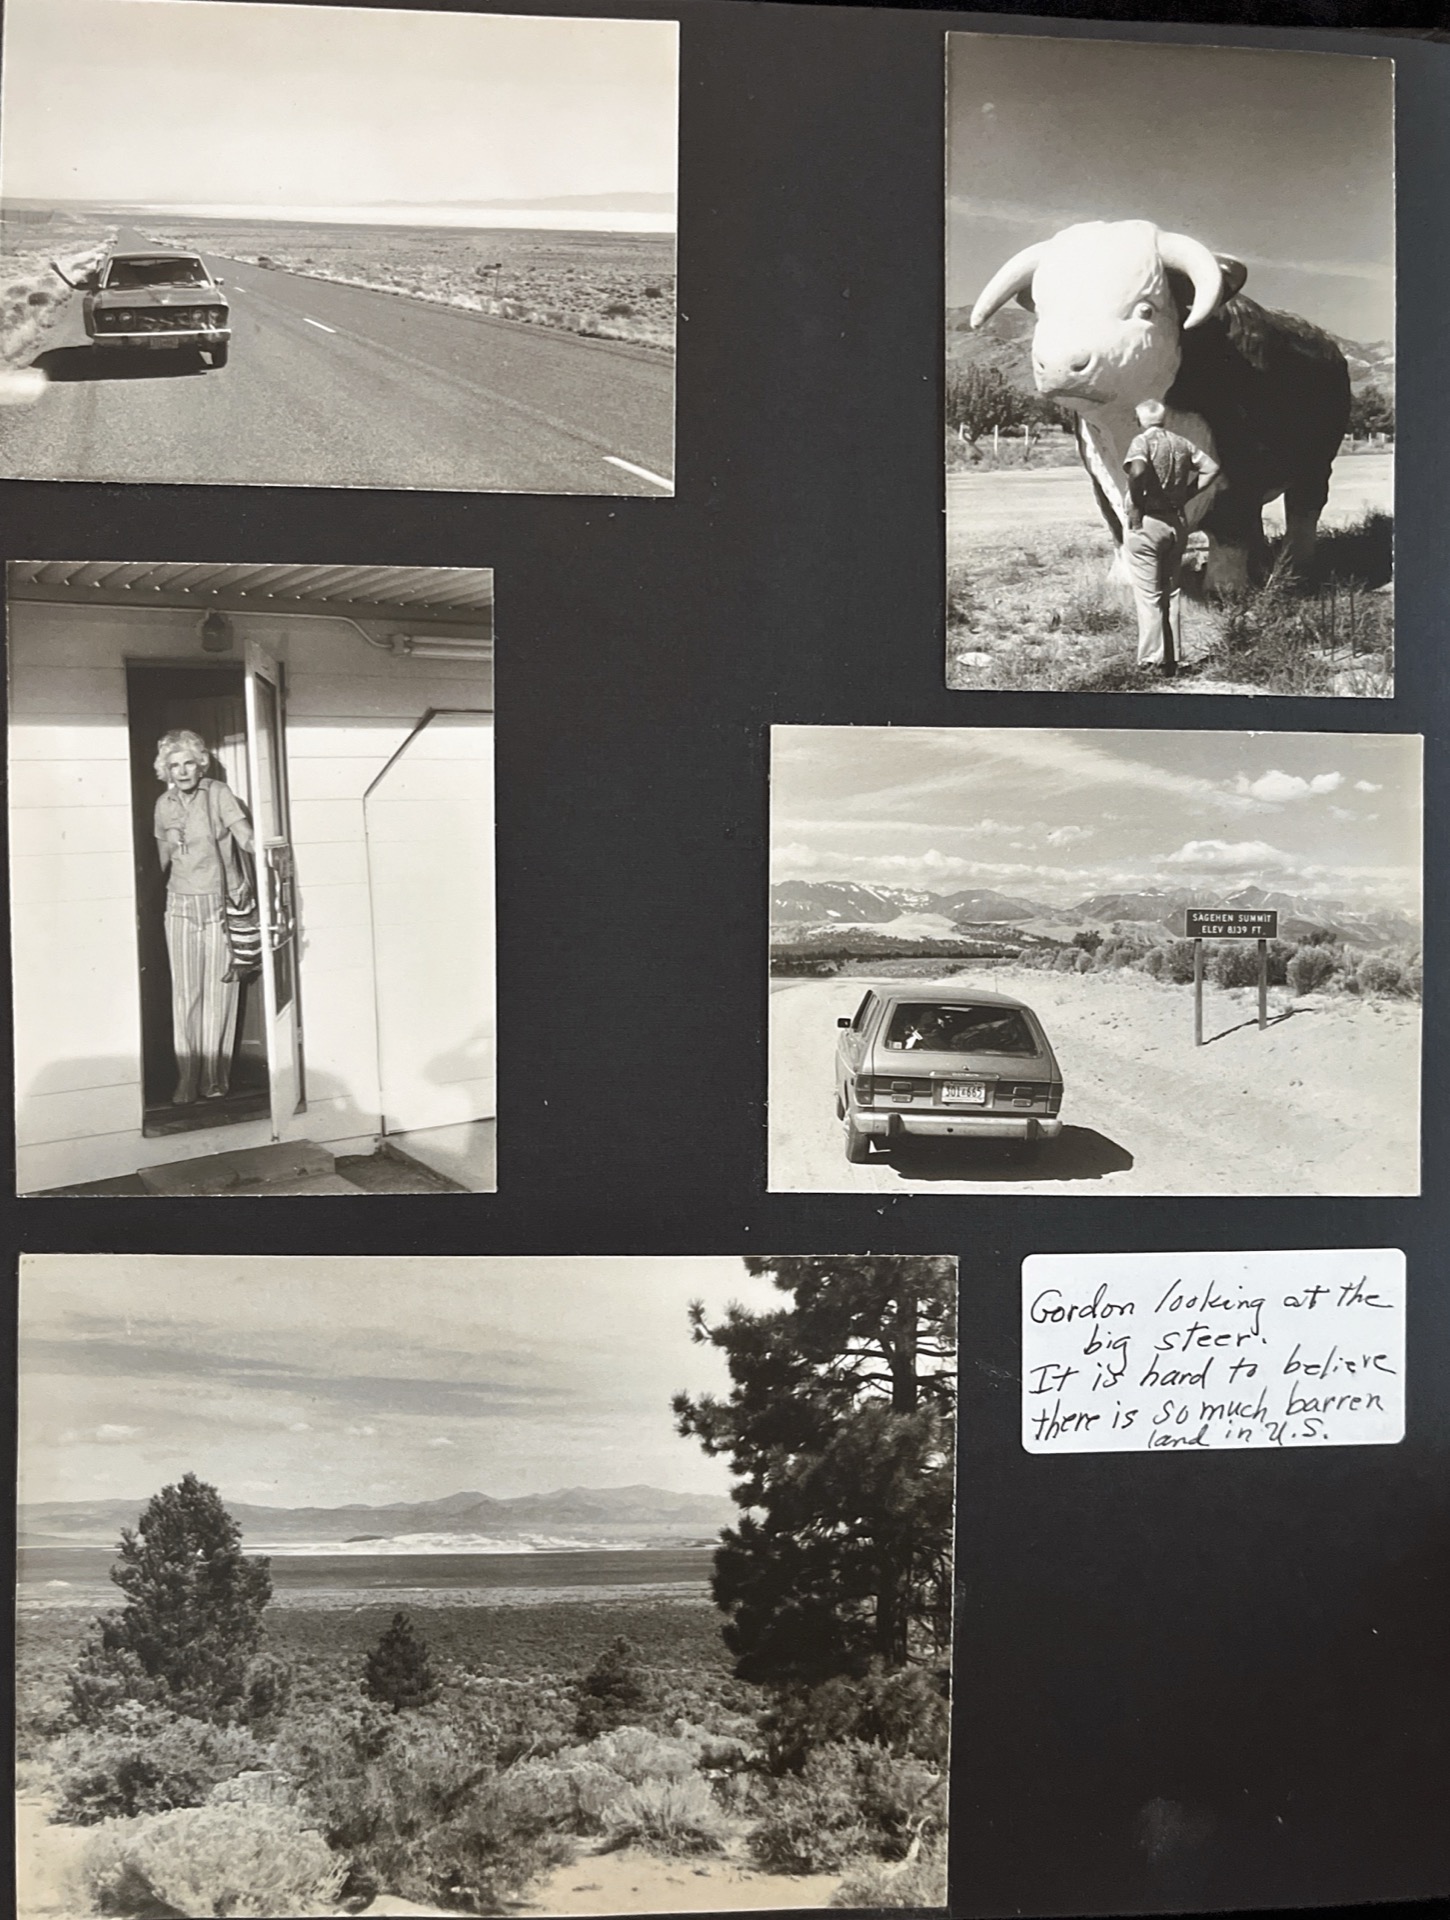 SAGEHEN SUMMIT
ELEV 8139 FT.
Gordon looking at the
big steer.
It is hard to believe
there is so much barren
land in U.S.